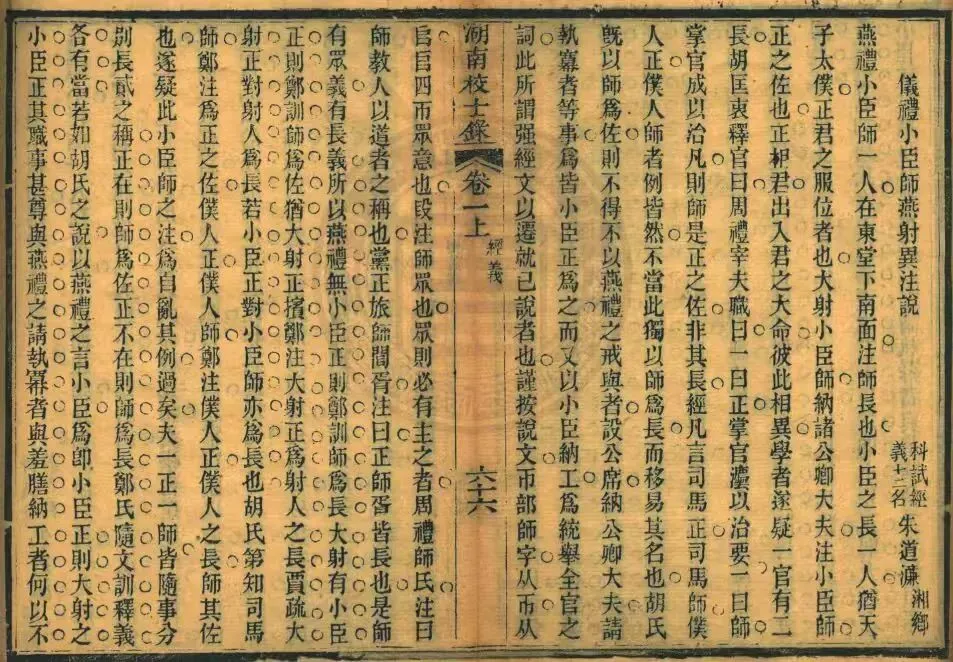 儀禮小臣師燕射異注說
科試經義十二名 朱道濂 湘鄉
燕禮小臣師一人在東堂下南面注師長也小臣之長一人猶天
子太僕正君之服位者也大射小臣師納諸公卿大夫注小臣師
正之佐也正相君出入君之大命彼此相異學者遂疑一官有二
長胡匡衷釋官曰周禮宰夫職曰一曰正掌官灋以治要一曰師
掌官成以治凡則師是正之佐非其長經凡言司馬正司馬師僕
人正僕人師者例皆然不當此獨以師爲長而移易其名也胡氏
旣以師爲佐則不得不以燕禮之戒與者設公席納公卿大夫請
執冪者等事爲皆小臣正爲之而又以小臣納工爲統舉全官之
詞此所謂强經文以遷就已說者也謹按說文帀部師字从帀从
湖南校士錄 卷一上 經義 六十六
𠂤𠂤四帀眾意也段注師眾也眾則必有主之者周禮師氏注曰
師教人以道者之稱也黨正旅師閭胥注曰正師胥皆長也是師
有眾義有長義所以燕禮無小臣正則鄭訓師爲長大射有小臣
正則鄭訓師爲佐猶大射正擯鄭注大射正爲射人之長賈疏大
射正對射人爲長若小臣正對小臣師亦爲長也胡氏第知司馬
師鄭注爲正之佐僕人正僕人師鄭注僕人正僕人之長師其佐
也遂疑此小臣師之注爲自亂其例過矣夫一正一師皆隨事分
別長貳之稱正在則師爲佐正不在則師爲長鄭氏隨文訓釋義
各有當若如胡氏之說以燕禮之言小臣爲卽小臣正則大射之
小臣正其職事甚尊與燕禮之請執冪者與羞膳納工者何以不